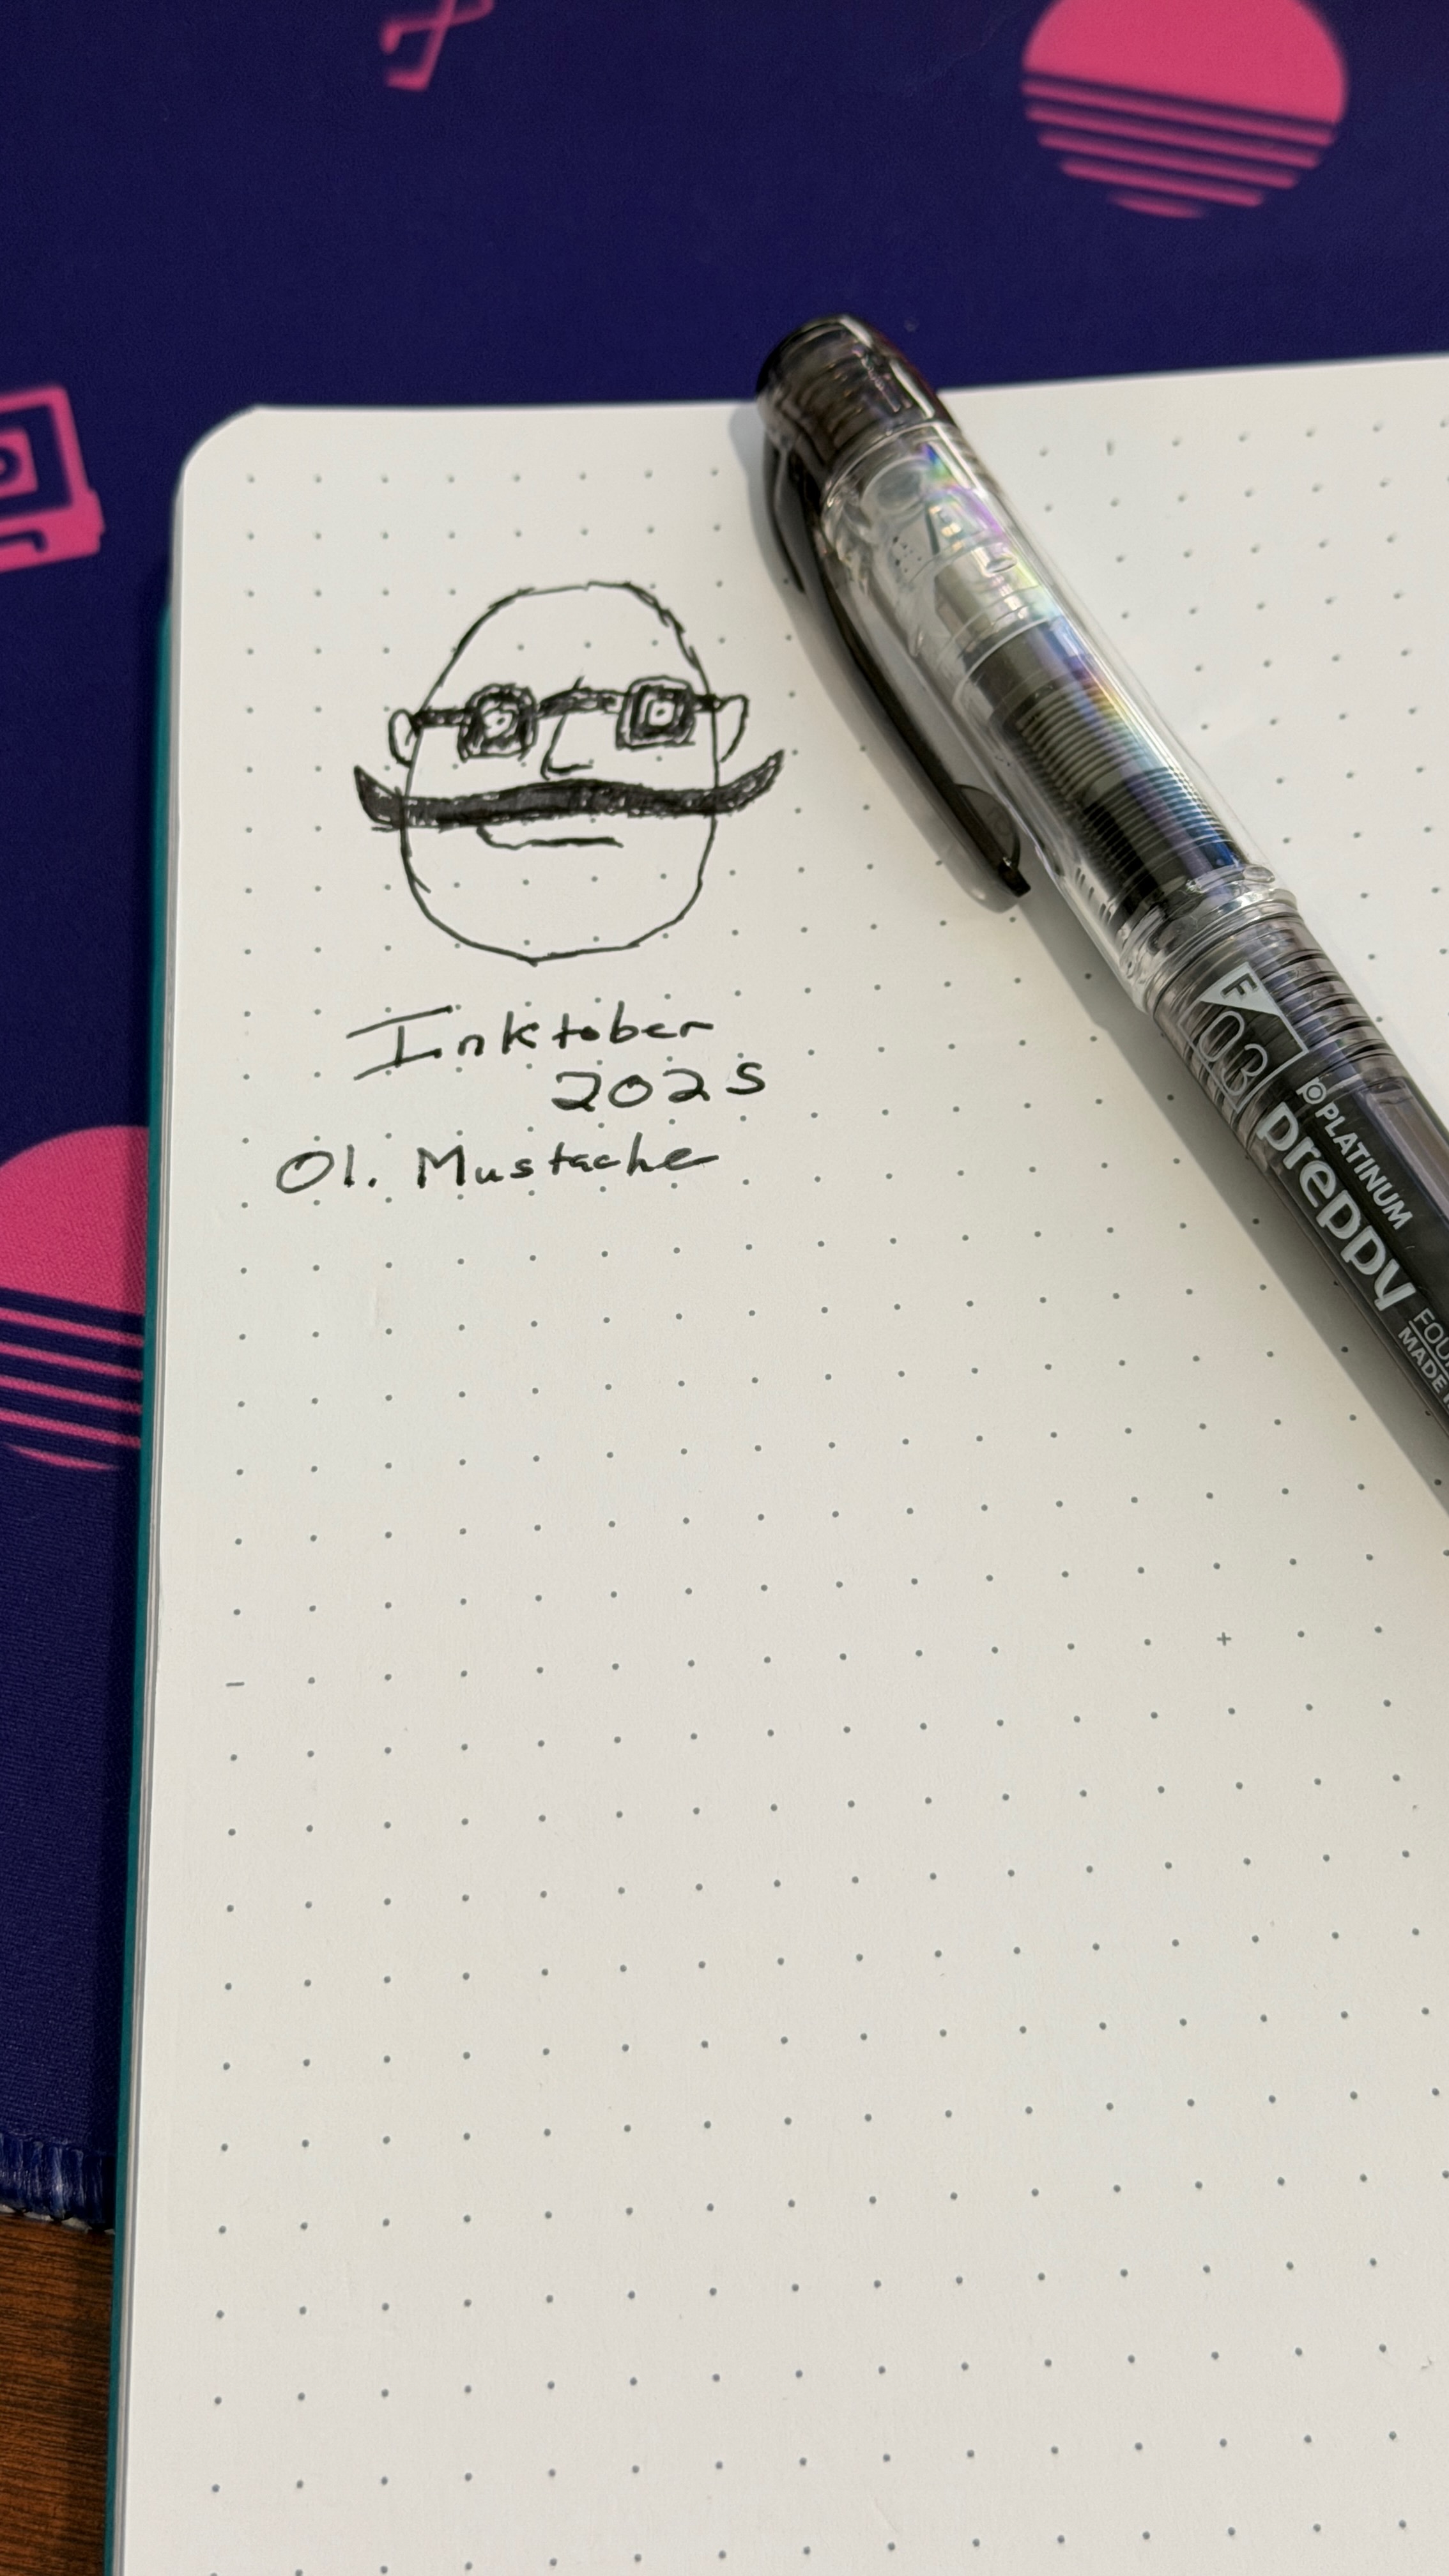 Inktober
2025
01. Mustache
F
03
PLATINUM
preppy
FOU
MADE